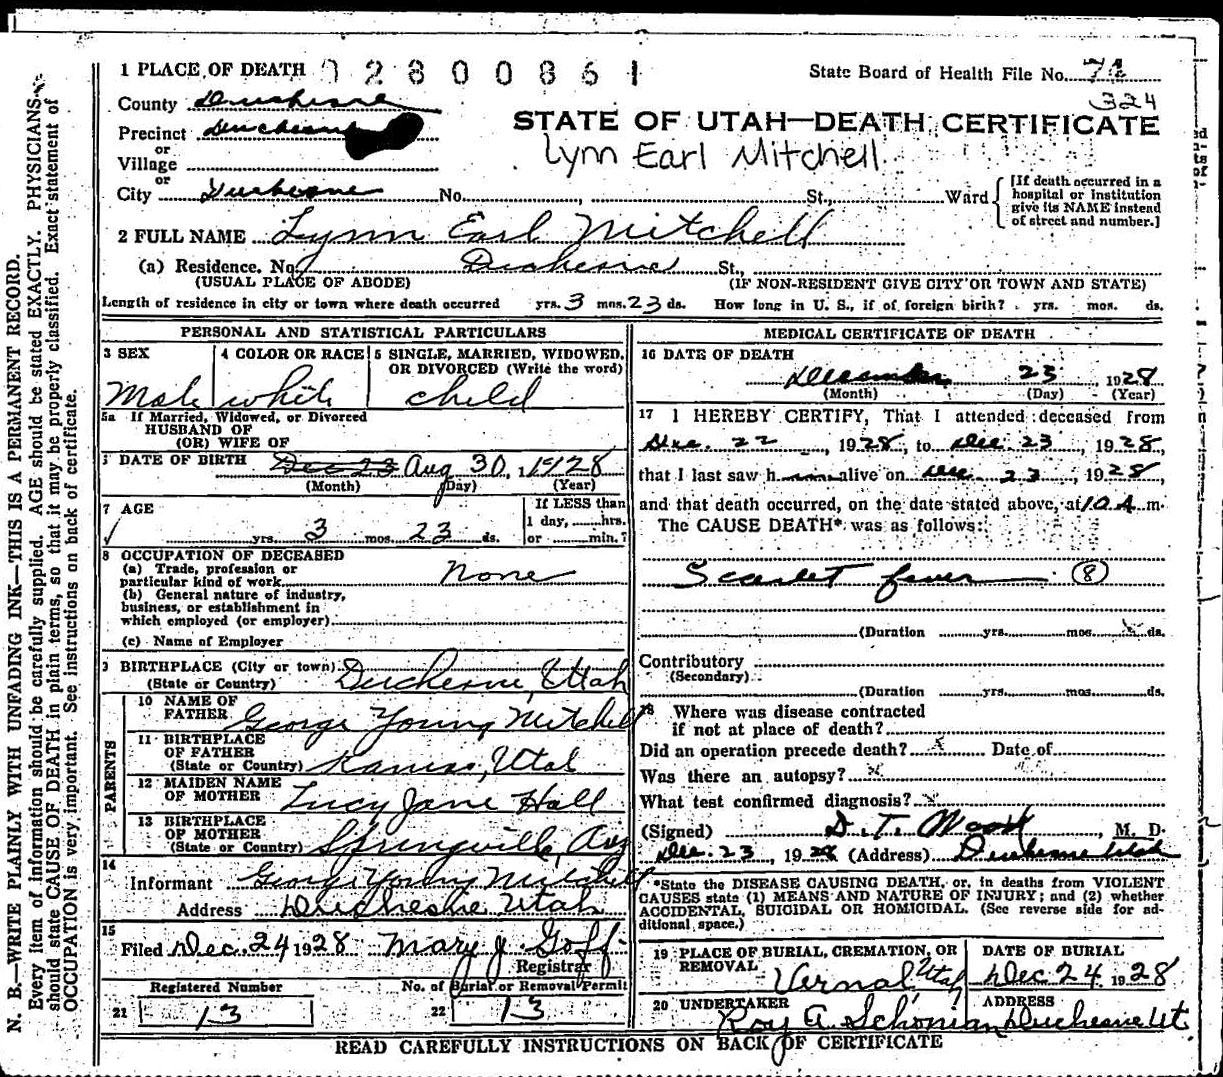 1 PLACE OF DEATH 02800861 State Board of Health File No. 72
324
County Duchesne
STATE OF UTAH—DEATH CERTIFICATE
Precinct Duchesne
or
Lynn Earl Mitchell
Village
or
City Duchesne No. , St., Ward
[If death occurred in a hospital or institution give its NAME instead of street and number.]
2 FULL NAME Lynn Earl Mitchell
(a) Residence. No. Duchesne St.,
(USUAL PLACE OF ABODE) (IF NON-RESIDENT GIVE CITY OR TOWN AND STATE)
Length of residence in city or town where death occurred yrs. 3 mos. 23 ds. How long in U. S., if of foreign birth? yrs. mos. ds.
PERSONAL AND STATISTICAL PARTICULARS
3 SEX 4 COLOR OR RACE 5 SINGLE, MARRIED, WIDOWED,
OR DIVORCED (Write the word)
Male white child
5a If Married, Widowed, or Divorced
HUSBAND OF
(OR) WIFE OF
DATE OF BIRTH Dec 23 Aug 30, 1928
(Month) (Day) (Year)
7 AGE If LESS than
1 day, hrs.
yrs. 3 mos. 23 ds. or min.?
8 OCCUPATION OF DECEASED
(a) Trade, profession or
particular kind of work None
(b) General nature of industry,
business, or establishment in
which employed (or employer)
(c) Name of Employer
9 BIRTHPLACE (City or town) Duchesne, Utah
(State or Country)
PARENTS
10 NAME OF
FATHER George Young Mitchell
11 BIRTHPLACE
OF FATHER
(State or Country) Kamas, Utah
12 MAIDEN NAME
OF MOTHER Lucy Jane Hall
13 BIRTHPLACE
OF MOTHER
(State or Country) Springville,
14
Informant George Young Mitchell
Address Duchesne Utah
15
Filed Dec. 24 1928 Mary J. Goff
Registrar
Registered Number No. of Burial or Removal Permit
21 13 22 13
MEDICAL CERTIFICATE OF DEATH
16 DATE OF DEATH
December 23, 1928
(Month) (Day) (Year)
17 I HEREBY CERTIFY, That I attended deceased from
Dec. 22, 1928, to Dec 23, 1928,
that I last saw h alive on Dec. 23, 1928,
and that death occurred, on the date stated above, at 10 A m.
The CAUSE DEATH* was as follows:
Scarlet fever (8)
(Duration yrs. mos. ds.
Contributory
(Secondary)
(Duration yrs. mos. ds.
18 Where was disease contracted
if not at place of death?
Did an operation precede death? x Date of
Was there an autopsy? x
What test confirmed diagnosis? x
(Signed) D. T. , M. D.
Dec. 23, 1928 (Address) Duchesne Utah
*State the DISEASE CAUSING DEATH, or, in deaths from VIOLENT
CAUSES state (1) MEANS AND NATURE OF INJURY; and (2) whether
ACCIDENTAL, SUICIDAL OR HOMICIDAL. (See reverse side for ad-
ditional space.)
19 PLACE OF BURIAL, CREMATION, OR
REMOVAL Vernal, Utah
DATE OF BURIAL
Dec 24 1928
20 UNDERTAKER ADDRESS
Roy A. Schonian Duchesne Ut.
READ CAREFULLY INSTRUCTIONS ON BACK OF CERTIFICATE
N. B.—WRITE PLAINLY WITH UNFADING INK—THIS IS A PERMANENT RECORD.
Every item of information should be carefully supplied. AGE should be stated EXACTLY. PHYSICIANS
should state CAUSE OF DEATH in plain terms, so that it may be properly classified. Exact statement of
OCCUPATION is very important. See instructions on back of certificate.